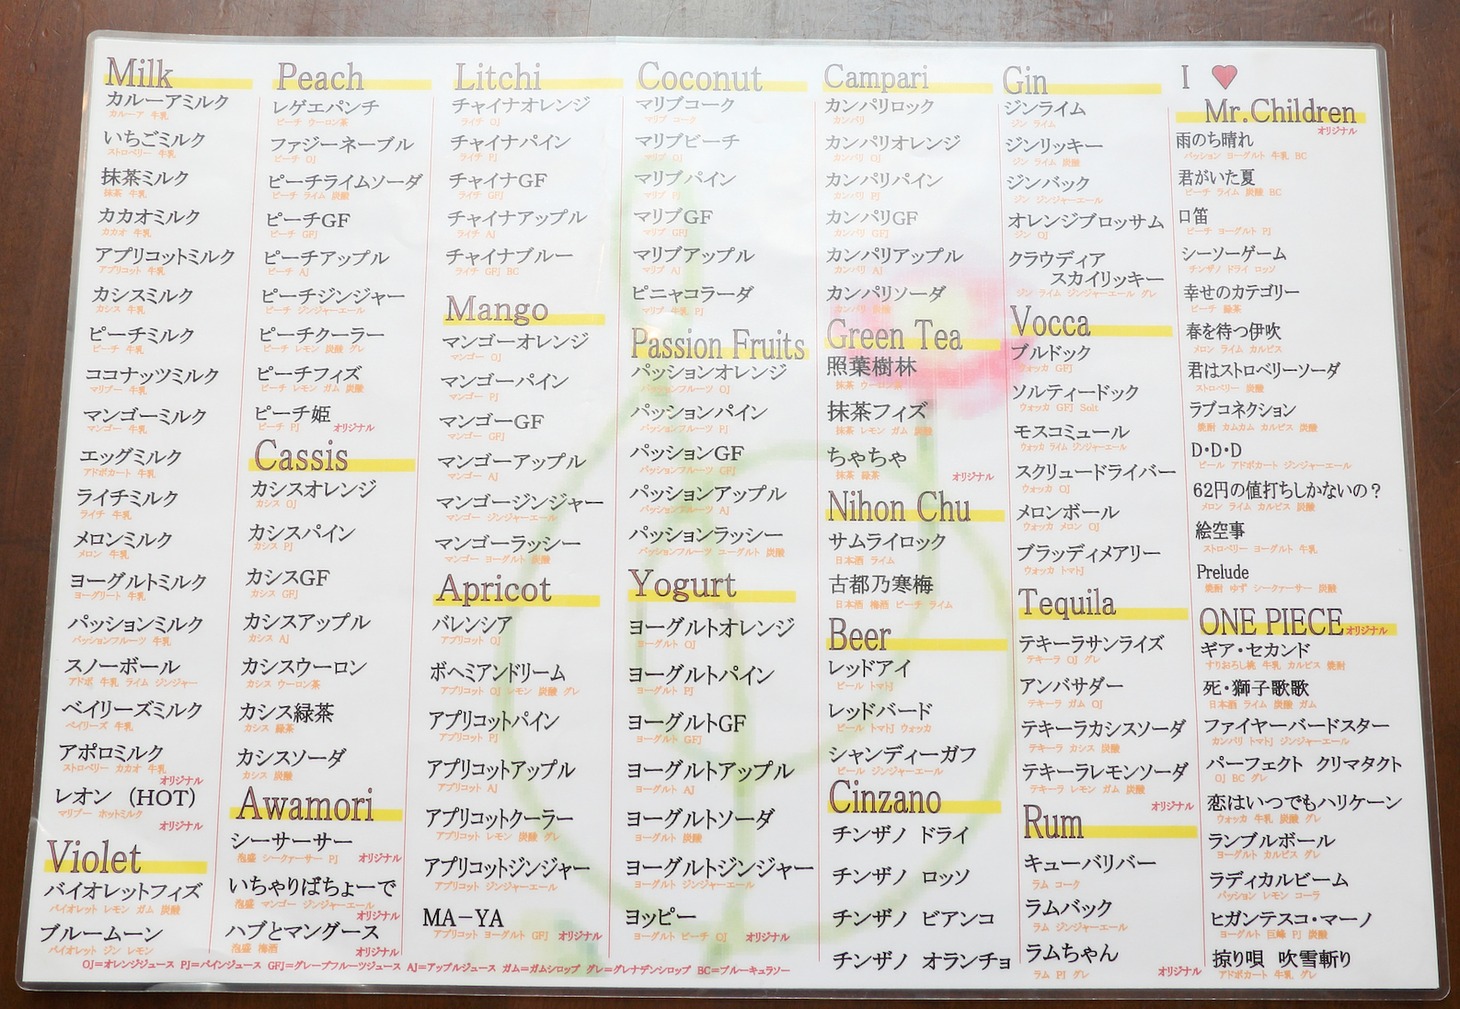 Milk
カルーアミルク
カルーア 牛乳
いちごミルク
ストロベリー 牛乳
抹茶ミルク
抹茶 牛乳
カカオミルク
カカオ 牛乳
アプリコットミルク
アプリコット 牛乳
カシスミルク
カシス 牛乳
ピーチミルク
ピーチ 牛乳
ココナッツミルク
マリブー 牛乳
マンゴーミルク
マンゴー 牛乳
エッグミルク
アドボカート 牛乳
ライチミルク
ライチ 牛乳
メロンミルク
メロン 牛乳
ヨーグルトミルク
ヨーグリート 牛乳
パッションミルク
パッションフルーツ 牛乳
スノーボール
アドボ 牛乳 ライム ジンジャー
ベイリーズミルク
ベイリーズ 牛乳
アポロミルク
ストロベリー カカオ 牛乳
オリジナル
レオン (HOT)
マリブー ホットミルク
オリジナル
Violet
バイオレットフィズ
バイオレット レモン ガム 炭酸
ブルームーン
バイオレット ジン レモン
Peach
レゲエパンチ
ピーチ ウーロン茶
ファジーネーブル
ピーチ OJ
ピーチライムソーダ
ピーチ ライム 炭酸
ピーチGF
ピーチ GFJ
ピーチアップル
ピーチ AJ
ピーチジンジャー
ピーチ ジンジャーエール
ピーチクーラー
ピーチ レモン 炭酸 グレ
ピーチフィズ
ピーチ レモン ガム 炭酸
ピーチ姫
ピーチ PJ オリジナル
Cassis
カシスオレンジ
カシス OJ
カシスパイン
カシス PJ
カシスGF
カシス GFJ
カシスアップル
カシス AJ
カシスウーロン
カシス ウーロン茶
カシス緑茶
カシス 緑茶
カシスソーダ
カシス 炭酸
Awamori
シーサーサー
泡盛 シークァーサー PJ オリジナル
いちゃりばちょーで
泡盛 マンゴー ジンジャーエール
オリジナル
ハブとマングース
泡盛 梅酒 オリジナル
Litchi
チャイナオレンジ
ライチ OJ
チャイナパイン
ライチ PJ
チャイナGF
ライチ GFJ
チャイナアップル
ライチ AJ
チャイナブルー
ライチ GFJ BC
Mango
マンゴーオレンジ
マンゴー OJ
マンゴーパイン
マンゴー PJ
マンゴーGF
マンゴー GFJ
マンゴーアップル
マンゴー AJ
マンゴージンジャー
マンゴー ジンジャーエール
マンゴーラッシー
マンゴー ヨーグルト 炭酸
Apricot
バレンシア
アプリコット OJ
ボヘミアンドリーム
アプリコット OJ レモン 炭酸 グレ
アプリコットパイン
アプリコット PJ
アプリコットアップル
アプリコット AJ
アプリコットクーラー
アプリコット レモン 炭酸 グレ
アプリコットジンジャー
アプリコット ジンジャーエール
MA-YA
アプリコット ヨーグルト GFJ オリジナル
Coconut
マリブコーク
マリブ コーク
マリブピーチ
マリブ OJ
マリブパイン
マリブ PJ
マリブGF
マリブ GFJ
マリブアップル
マリブ AJ
ピニャコラーダ
マリブ 牛乳 PJ
Passion Fruits
パッションオレンジ
パッションフルーツ OJ
パッションパイン
パッションフルーツ PJ
パッションGF
パッションフルーツ GFJ
パッションアップル
パッションフルーツ AJ
パッションラッシー
パッションフルーツ ヨーグルト 炭酸
Yogurt
ヨーグルトオレンジ
ヨーグルト OJ
ヨーグルトパイン
ヨーグルト PJ
ヨーグルトGF
ヨーグルト GFJ
ヨーグルトアップル
ヨーグルト AJ
ヨーグルトソーダ
ヨーグルト 炭酸
ヨーグルトジンジャー
ヨーグルト ジンジャーエール
ヨッピー
ヨーグルト ピーチ OJ オリジナル
Campari
カンパリロック
カンパリ
カンパリオレンジ
カンパリ OJ
カンパリパイン
カンパリ PJ
カンパリGF
カンパリ GFJ
カンパリアップル
カンパリ AJ
カンパリソーダ
カンパリ 炭酸
Green Tea
照葉樹林
抹茶 ウーロン茶
抹茶フィズ
抹茶 レモン ガム 炭酸
ちゃちゃ
抹茶 緑茶 オリジナル
Nihon Chu
サムライロック
日本酒 ライム
古都乃寒梅
日本酒 梅酒 ピーチ ライム
Beer
レッドアイ
ビール トマトJ
レッドバード
ビール トマトJ ウォッカ
シャンディーガフ
ビール ジンジャーエール
Cinzano
チンザノ ドライ
チンザノ ロッソ
チンザノ ビアンコ
チンザノ オランチョ
Gin
ジンライム
ジン ライム
ジンリッキー
ジン ライム 炭酸
ジンバック
ジン ジンジャーエール
オレンジブロッサム
ジン OJ
クラウディア
スカイリッキー
ジン ライム ジンジャーエール グレ
Vocca
ブルドック
ウォッカ GFJ
ソルティードック
ウォッカ GFJ Solt
モスコミュール
ウォッカ ライム ジンジャーエール
スクリュードライバー
ウォッカ OJ
メロンボール
ウォッカ メロン OJ
ブラッディメアリー
ウォッカ トマトJ
Tequila
テキーラサンライズ
テキーラ OJ グレ
アンバサダー
テキーラ ガム OJ
テキーラカシスソーダ
テキーラ カシス 炭酸
テキーラレモンソーダ
テキーラ レモン ガム 炭酸
オリジナル
Rum
キューバリバー
ラム コーク
ラムバック
ラム ジンジャーエール
ラムちゃん
ラム PJ グレ オリジナル
I ♥
Mr.Children
オリジナル
雨のち晴れ
パッション ヨーグルト 牛乳 BC
君がいた夏
ピーチ ライム 炭酸 BC
口笛
ピーチ ヨーグルト PJ
シーソーゲーム
チンザノ ドライ ロッソ
幸せのカテゴリー
ピーチ 緑茶
春を待つ伊吹
メロン ライム カルピス
君はストロベリーソーダ
ストロベリー 炭酸
ラブコネクション
焼酎 カムカム カルピス 炭酸
D・D・D
ビール アドボカート ジンジャーエール
62円の値打ちしかないの？
メロン ライム カルピス 炭酸
絵空事
ストロベリー ヨーグルト 牛乳
Prelude
焼酎 ゆず シークァーサー 炭酸
ONE PIECE オリジナル
ギア・セカンド
すりおろし桃 牛乳 カルピス 焼酎
死・獅子歌歌
日本酒 ライム 炭酸 ガム
ファイヤーバードスター
カンパリ トマトJ ジンジャーエール
パーフェクト クリマタクト
OJ BC グレ
恋はいつでもハリケーン
ウォッカ 牛乳 炭酸 グレ
ランブルボール
ヨーグルト カルピス グレ
ラディカルビーム
パッション レモン コーラ
ヒガンテスコ・マーノ
ヨーグルト 巨峰 PJ 炭酸
掠り唄 吹雪斬り
アドボカート 牛乳 グレ
OJ=オレンジジュース PJ=パインジュース GFJ=グレープフルーツジュース AJ=アップルジュース ガム=ガムシロップ グレ=グレナデンシロップ BC=ブルーキュラソー